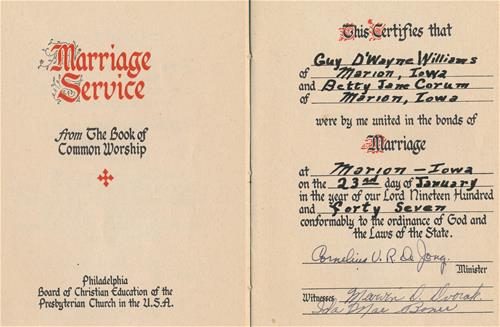 Marriage
Service
from The Book of
Common Worship
Philadelphia
Board of Christian Education of the
Presbyterian Church in the U.S.A.
This Certifies that
Guy D'Wayne Williams
of Marion, Iowa
and Betty Jane Corum
of Marion, Iowa
were by me united in the bonds of
Marriage
at Marion – Iowa
on the 23rd day of January
in the year of our Lord Nineteen Hundred
and Forty Seven
conformably to the ordinance of God and
the Laws of the State.
Cornelius V. R. De Jong.
Minister
Witnesses Marvin D. Dvorak
Ida Mae